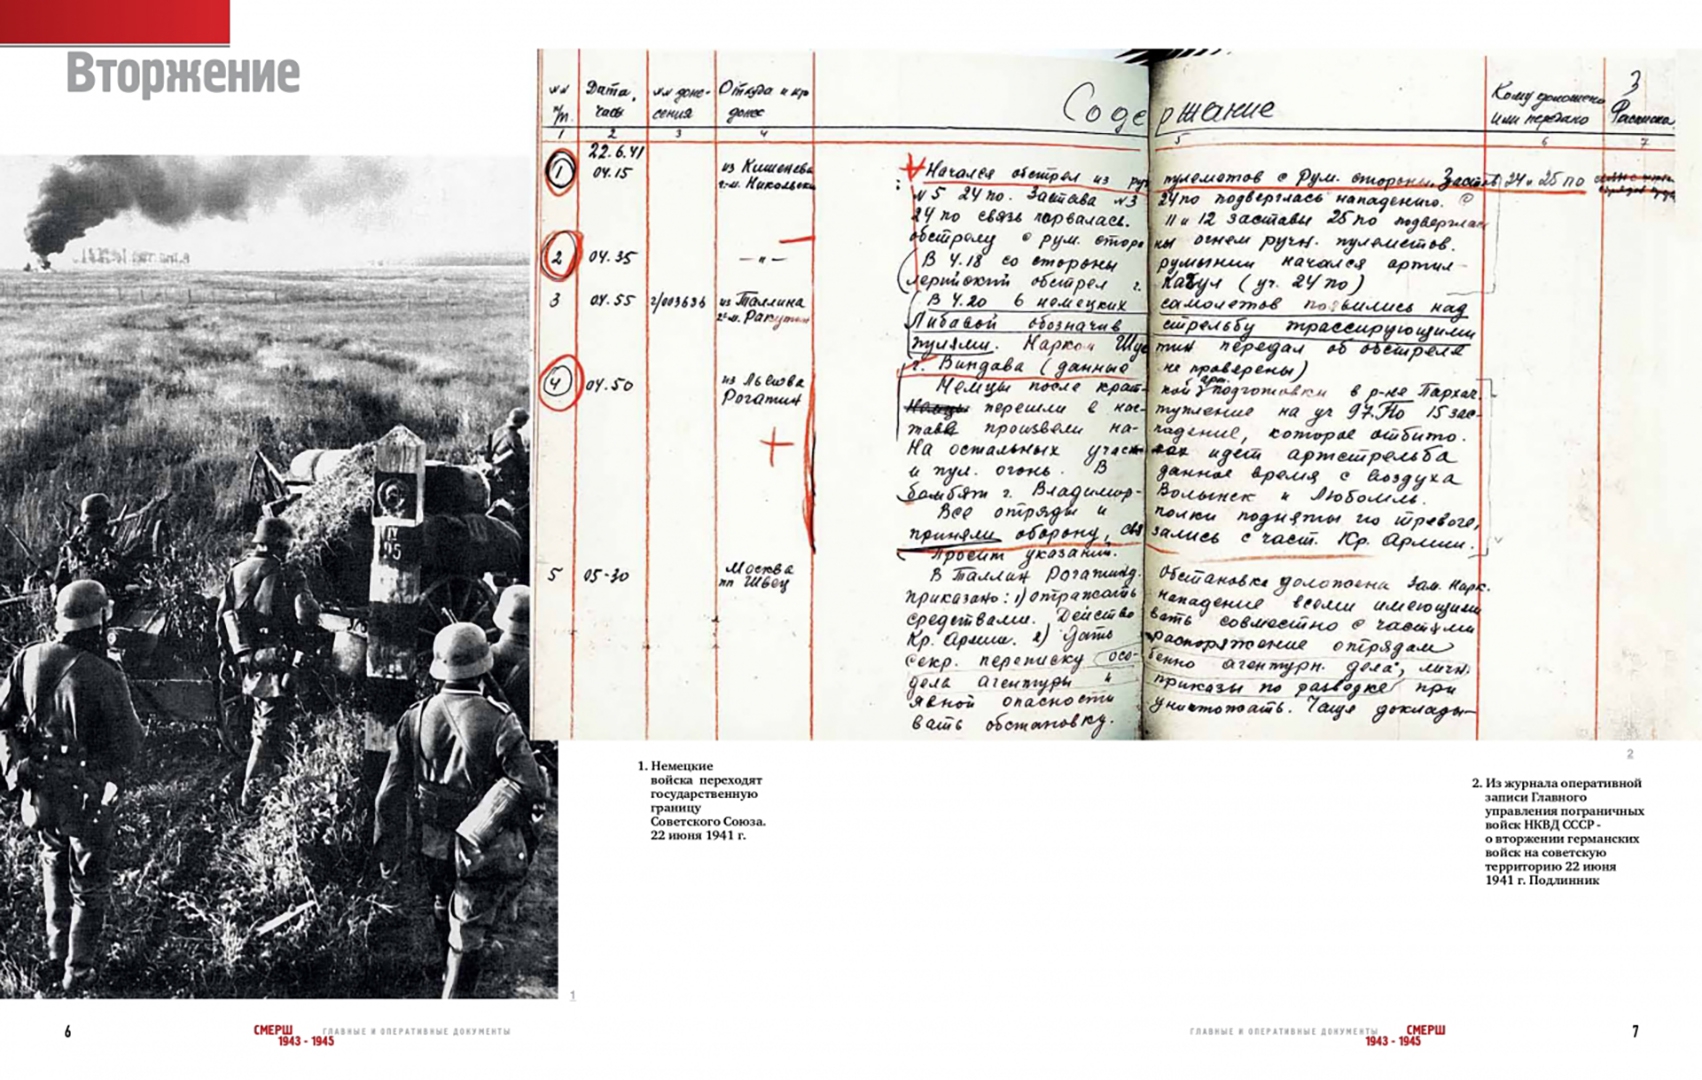 Вторжение
Дата, часы
Откуда и кр
донес
Содержание
Кому доложено
или передано
3
1 2 3 4 5 6 7
1
22.6.41
04.15
из Кишенева
г-м. Никольск
Начался обстрел из руч пулеметов с Рум. стороны. Застав 24 и 25 по
№5 24 по. Застава №3 24 по подверглась нападению.
24 по связь порвалась. 11 и 12 заставы 25 по подверглась
обстрелу с рум. стороны огнем ручн. пулеметов.
2
04.35
— " —
В 4.18 со стороны румынии начался артил-
лерийский обстрел г. Кагул (уч. 24 по)
3
04.55
из Таллина
г-м. Ракутин
В 4.20 6 немецких самолетов появились над
Либавой обозначив стрельбу трассирующими
пулями. Нарком Шустин передал об обстреле
г. Виндава (данные не проверены)
4
04.50
из Львова
Рогатин
Немцы после крат- кой арт. подготовки в р-не Пархач
перешли в нас- тупление на уч 97 По 15 зас-
тава произвели на- падение, которое отбито.
На остальных участ- ках идет артстрельба
и пул. огонь. В данное время с воздуха
бомбят г. Владимир- Волынск и Любомль.
Все отряды и полки подняты по тревоге,
приняли оборону, свя зались с част. Кр. Армии.
Просит указаний.
5
05-30
Москва
пп Швец
В Таллин Рогатину. Обстановка доложена Зам. Нарк.
приказано: 1) отражать нападение всеми имеющими
средствами. Действо вать совместно с частями
Кр. Армии. 2) Дать распоряжение отрядам
секр. переписку (осо- бенно агентурн. дела, личн.
дела агентуры и приказы по разведке) при
явной опасности уничтожать. Чаще доклады-
вать обстановку.
2
1. Немецкие
войска переходят
государственную
границу
Советского Союза.
22 июня 1941 г.
2. Из журнала оперативной
записи Главного
управления пограничных
войск НКВД СССР -
о вторжении германских
войск на советскую
территорию 22 июня
1941 г. Подлинник
1
6
СМЕРШ ГЛАВНЫЕ И ОПЕРАТИВНЫЕ ДОКУМЕНТЫ
1943 - 1945
ГЛАВНЫЕ И ОПЕРАТИВНЫЕ ДОКУМЕНТЫ СМЕРШ
1943 - 1945
7